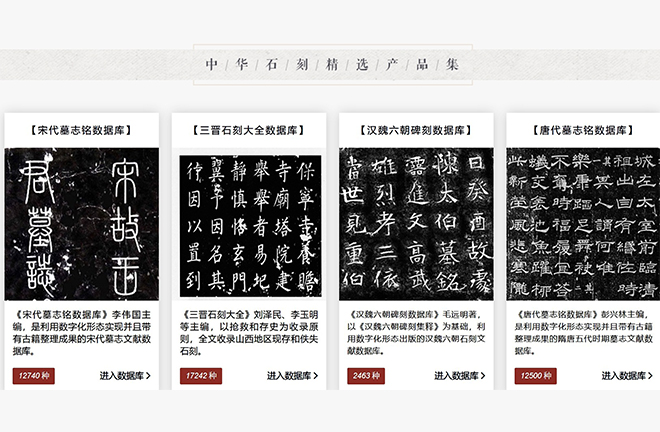 中/华/石/刻/精/选/产/品/集
【宋代墓志铭数据库】
宋故
君墓誌
《宋代墓志铭数据库》李伟国主
编，是利用数字化形态实现并且带
有古籍整理成果的宋代墓志文献数
据库。
12740 种
进入数据库
【三晋石刻大全数据库】
保寧寺養贍
寺廟塔院建
舉舉者易圯
靜慎修玄門
翼予因名其
徃因以置到
《三晋石刻大全》刘泽民、李玉明
等主编，以抢救和存史为收录原
则，全文收录山西地区现存和佚失
石刻。
17242 种
进入数据库
【汉魏六朝碑刻数据库】
日癸酉故豪
陳太伯墓銘
靈進文高武
雄烈孝三依
當世見重伯
《汉魏六朝碑刻数据库》毛远明著，
以《汉魏六朝碑刻集释》为基础，利
用数字化形态出版的汉魏六朝石刻文
献数据库。
2463 种
进入数据库
【唐代墓志铭数据库】
《唐代墓志铭数据库》彭兴林主编，
是利用数字化形态实现并且带有古籍
整理成果的隋唐五代时期墓志文献数
据库。
12500 种
进入数据库